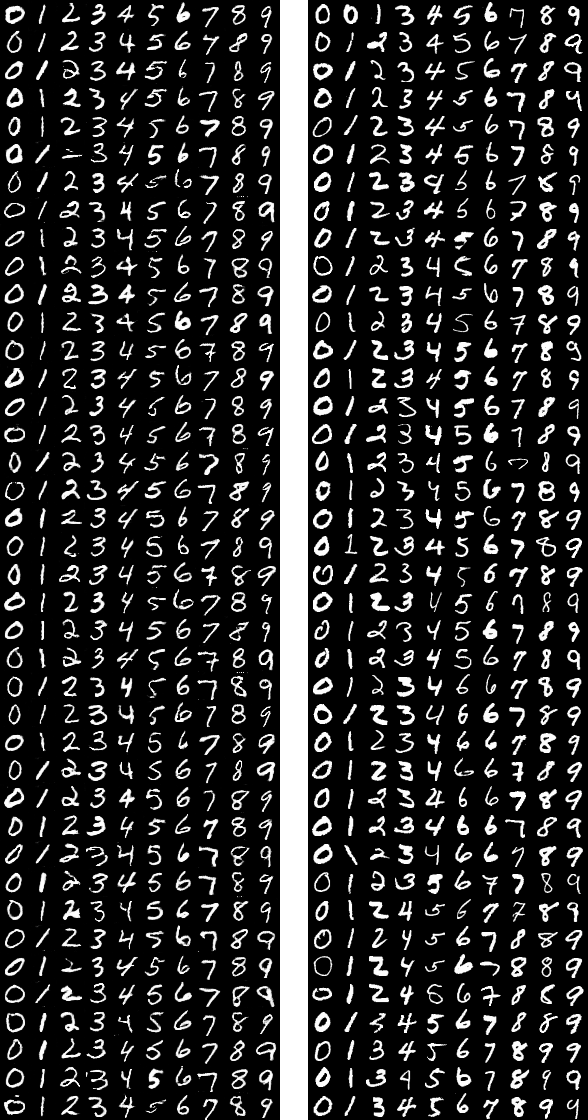 0 1 2 3 4 5 6 7 8 9
0 1 2 3 4 5 6 7 8 9
0 1 2 3 4 5 6 7 8 9
0 1 2 3 4 5 6 7 8 9
0 1 2 3 4 5 6 7 8 9
0 1 2 3 4 5 6 7 8 9
0 1 2 3 4 5 6 7 8 9
0 1 2 3 4 5 6 7 8 9
0 1 2 3 4 5 6 7 8 9
0 1 2 3 4 5 6 7 8 9
0 1 2 3 4 5 6 7 8 9
0 1 2 3 4 5 6 7 8 9
0 1 2 3 4 5 6 7 8 9
0 1 2 3 4 5 6 7 8 9
0 1 2 3 4 5 6 7 8 9
0 1 2 3 4 5 6 7 8 9
0 1 2 3 4 5 6 7 8 9
0 1 2 3 4 5 6 7 8 9
0 1 2 3 4 5 6 7 8 9
0 1 2 3 4 5 6 7 8 9
0 1 2 3 4 5 6 7 8 9
0 1 2 3 4 5 6 7 8 9
0 1 2 3 4 5 6 7 8 9
0 1 2 3 4 5 6 7 8 9
0 1 2 3 4 5 6 7 8 9
0 1 2 3 4 5 6 7 8 9
0 1 2 3 4 5 6 7 8 9
0 1 2 3 4 5 6 7 8 9
0 1 2 3 4 5 6 7 8 9
0 1 2 3 4 5 6 7 8 9
0 1 2 3 4 5 6 7 8 9
0 1 2 3 4 5 6 7 8 9
0 1 2 3 4 5 6 7 8 9
0 1 2 3 4 5 6 7 8 9
0 1 2 3 4 5 6 7 8 9
0 1 2 3 4 5 6 7 8 9
0 1 2 3 4 5 6 7 8 9
0 1 2 3 4 5 6 7 8 9
0 1 2 3 4 5 6 7 8 9
0 1 2 3 4 5 6 7 8 9
0 0 1 3 4 5 6 7 8 9
0 1 2 3 4 5 6 7 8 9
0 1 2 3 4 5 6 7 8 9
0 1 2 3 4 5 6 7 8 4
0 1 2 3 4 5 6 7 8 9
0 1 2 3 4 5 6 7 8 9
0 1 2 3 9 5 6 7 8 9
0 1 2 3 4 5 6 7 8 9
0 1 2 3 4 5 6 7 8 9
0 1 2 3 4 5 6 7 8 9
0 1 2 3 4 5 6 7 8 9
0 1 2 3 4 5 6 7 8 9
0 1 2 3 4 5 6 7 8 9
0 1 2 3 4 5 6 7 8 9
0 1 2 3 4 5 6 7 8 9
0 1 2 3 4 5 6 7 8 9
0 1 2 3 4 5 6 7 8 9
0 1 2 3 4 5 6 7 8 9
0 1 2 3 4 5 6 7 8 9
0 1 2 3 4 5 6 7 8 9
0 1 2 3 4 5 6 7 8 9
0 1 2 3 4 5 6 7 8 9
0 1 2 3 4 5 6 7 8 9
0 1 2 3 4 5 6 7 8 9
0 1 2 3 4 6 6 7 8 9
0 1 2 3 4 6 6 7 8 9
0 1 2 3 4 6 6 7 8 9
0 1 2 3 4 6 6 7 8 9
0 1 2 3 4 6 6 7 8 9
0 1 2 3 4 6 6 7 8 9
0 1 2 3 4 6 6 7 8 9
0 1 2 3 5 6 7 7 8 9
0 1 2 4 5 6 7 7 8 9
0 1 2 4 5 6 7 8 8 9
0 1 2 4 5 6 7 8 8 9
0 1 2 4 6 6 7 8 8 9
0 1 3 4 5 6 7 8 8 9
0 1 3 4 5 6 7 8 9 9
0 1 3 4 5 6 7 8 9 9
0 1 3 4 5 6 7 8 9 9